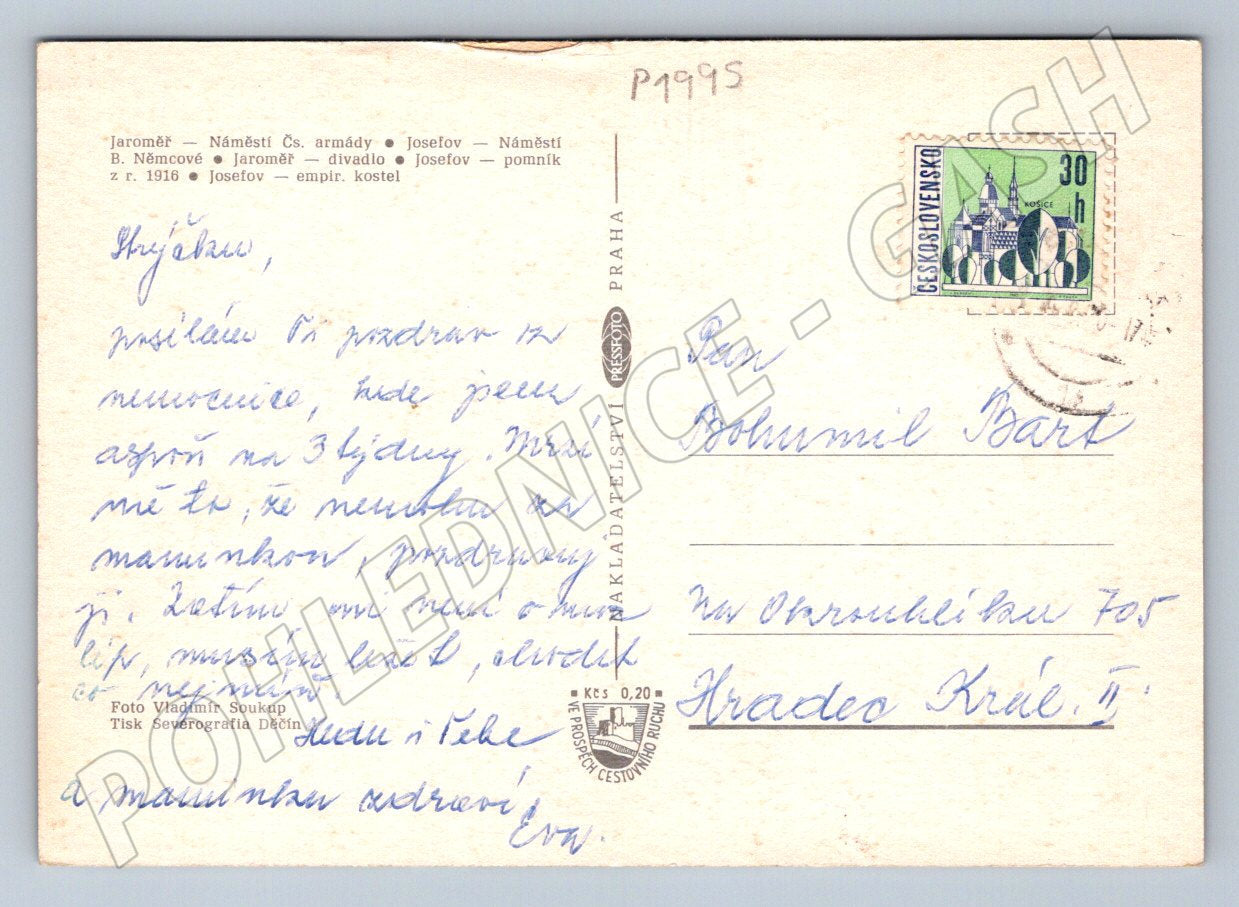 P1995
Jaroměř — Náměstí Čs. armády ● Josefov — Náměstí
B. Němcové ● Jaroměř — divadlo ● Josefov — pomník
z r. 1916 ● Josefov — empir. kostel
Strýčku,
posílám Ti pozdrav z
nemocnice, kde jsem
aspoň na 3 týdny. Mrzí
mě to, že nemohu za
maminkou, pozdravuj
ji. Zatím mi není o moc
líp, musím ležet, chodit
co nejméň.
Foto Vladimír Soukup
Tisk Severografia Děčín
i Tebe
a maminku zdraví
Eva.
NAKLADATELSTVÍ PRESSFOTO PRAHA
Kčs 0,20
VE PROSPĚCH CESTOVNÍHO RUCHU
ČESKOSLOVENSKO
30 h
KOŠICE
Pan
Bohumil Bárt
Na Okrouhlíku 705
Hradec Král. II
POHLEDNICE - GASH